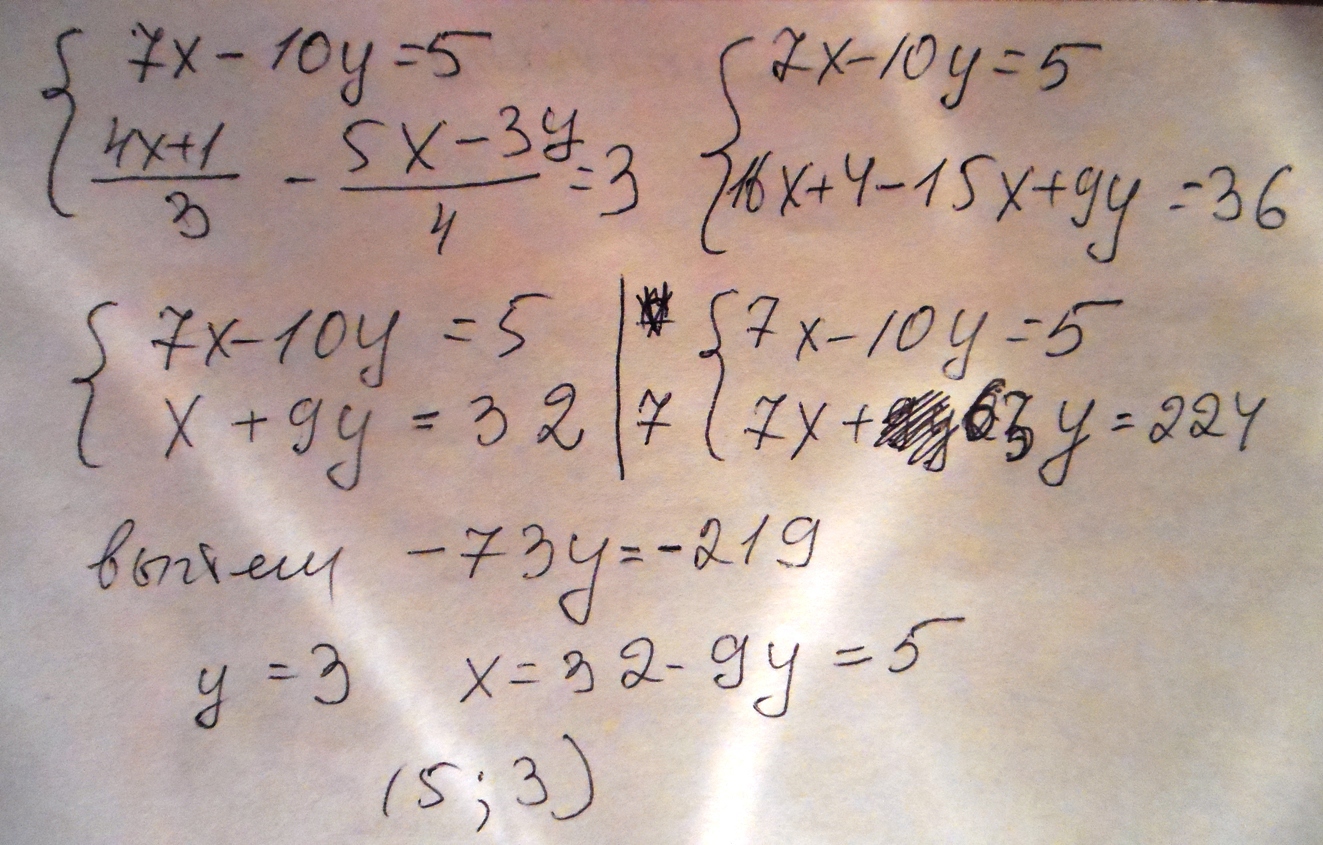 { 7x - 10y = 5
{ (4x+1)/3 - (5x-3y)/4 = 3
{ 7x - 10y = 5
{ 16x + 4 - 15x + 9y = 36
{ 7x - 10y = 5 |
{ x + 9y = 32 | 7
{ 7x - 10y = 5
{ 7x + 63y = 224
вычтем -73y = -219
y = 3 x = 32 - 9y = 5
(5; 3)